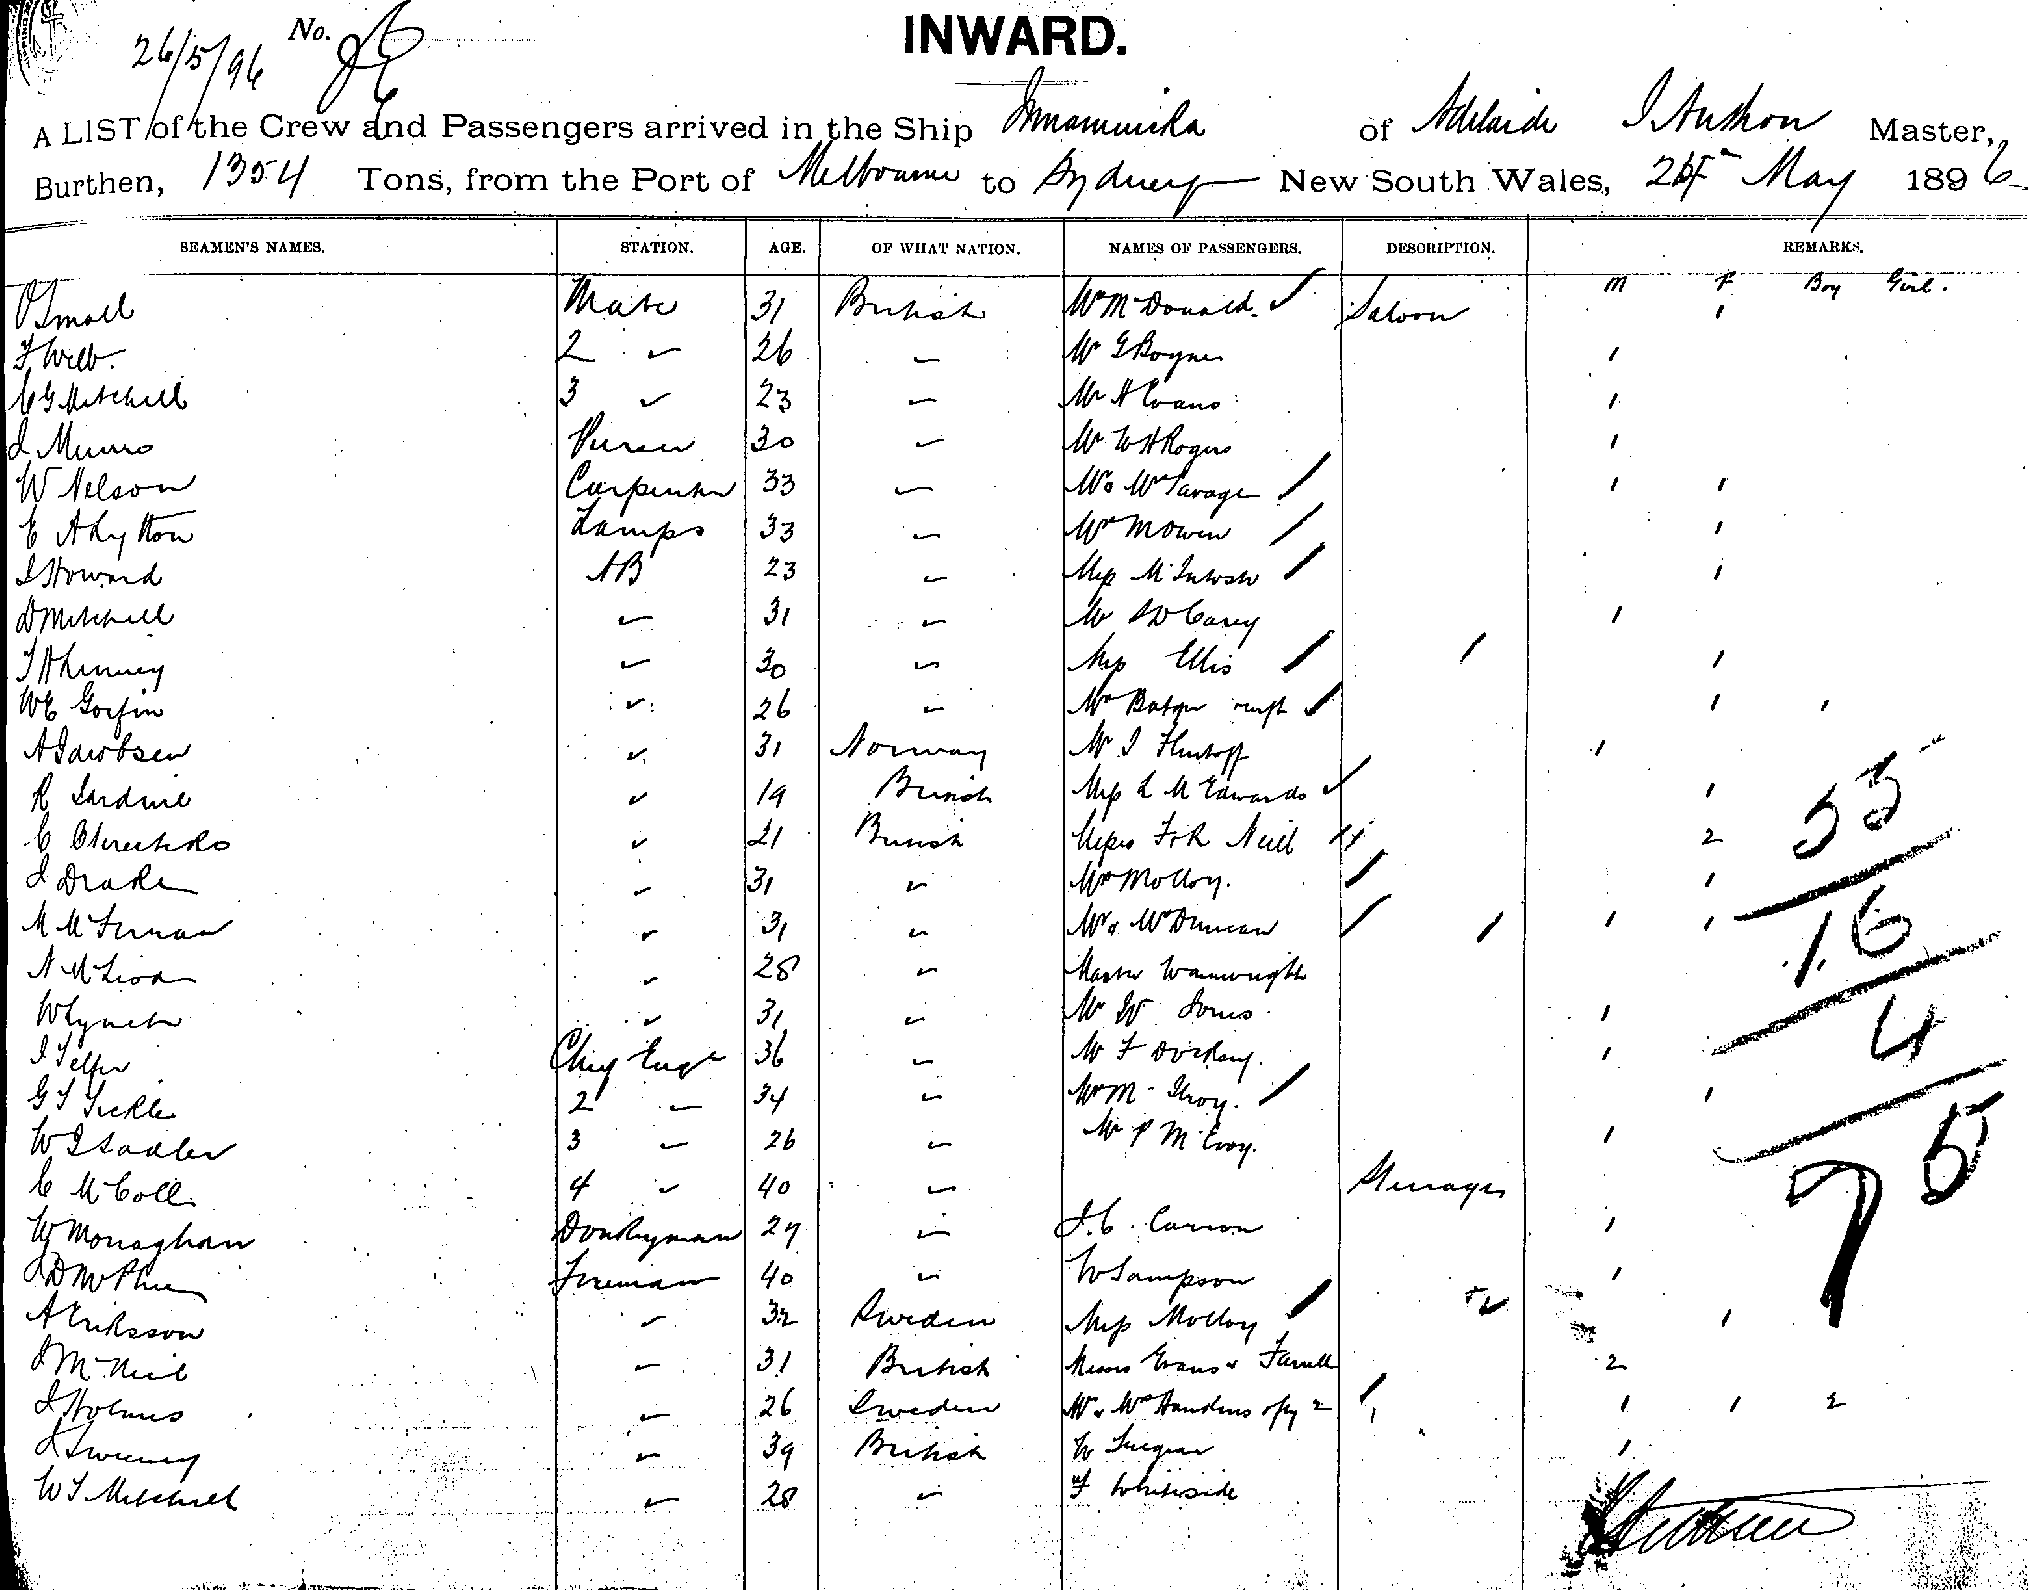 26/5/96 No.
INWARD.
A LIST of the Crew and Passengers arrived in the Ship Innamincka of Adelaide Master,
Burthen, 1354 Tons, from the Port of Melbourne to Sydney New South Wales, May 1896
SEAMEN'S NAMES. STATION. AGE. OF WHAT NATION. NAMES OF PASSENGERS. DESCRIPTION. REMARKS.
M F Boy Girl.
Small Mate 31 British Mrs McDonald. Saloon 1
F Webb. 2 " 26 " Mr 1
C G Mitchell 3 " 23 " Mr H Evans 1
J Munro Purser 30 " Mr W H Rogers 1
W Nelson Carpenter 33 " Mr & Mrs Savage 1 1
E A Lytton Lamps 33 " Mrs Mowen 1
J Howard AB 23 " Miss McIntosh 1
D Mitchell " 31 " Mr Carey 1
" 30 " Miss Ellis 1
W E " 26 " Mrs 1 1
A Jacobsen " 31 Norway Mr J 1
R Jardine " 19 British Miss L M Edwards 1
C " 21 British Misses F & R Neill 2
J Drake " 31 " Mrs Molloy. 1
M " 31 " Mr & Mrs Duncan 1 1
N McLeod " 28 " Master Wainwright
W Lynch " 31 " Mr W Jones 1
J Telfer Chief Engr 36 " Mr F 1
G T Sickle 2 " 34 " Mrs 1
W J Sadler 3 " 26 " Mr P McEvoy. 1
C McColl 4 " 40 " Steerage
W Monaghan Donkeyman 29 " J.C. Carson 1
J D McPhee Fireman 40 " W Sampson 1
A Eriksson " 32 Sweden Miss Molloy 1
J McNeil " 31 British Messrs Evans & Farrell 2
J Holmes " 26 Sweden Mr & Mrs 2 1 1 2
J Sweeney " 39 British W 1
W T Mitchell " 28 " F Whiteside
55
16
4
75